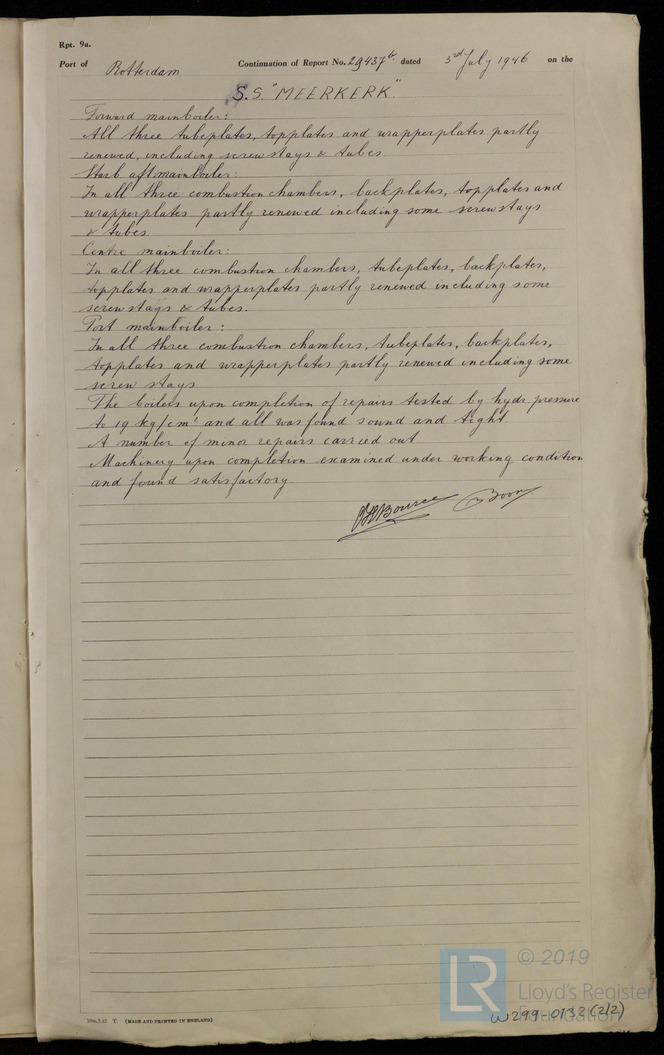 Rpt. 9a.
Port of Rotterdam Continuation of Report No. 29437b dated 3rd July 1946 on the
S.S. "MEERKERK"
Forward mainboiler:
All three tubeplates, topplates and wrapperplates partly
renewed, including screwstays & tubes
Starb aftmainboiler:
In all three combustionchambers, backplates, topplates and
wrapperplates partly renewed including some screwstays
& tubes.
Centre mainboiler:
In all three combustion chambers, tubeplates, backplates,
topplates and wrapperplates partly renewed including some
screwstays & tubes.
Port mainboiler:
In all three combustion chambers, tubeplates, backplates,
topplates and wrapperplates partly renewed including some
screw stays
The boilers upon completion of repairs tested by hydr. pressure
to 19 kg/cm² and all was found sound and tight.
A number of minor repairs carried out
Machinery upon completion examined under working condition
and found satisfactory
Boon
T. (MADE AND PRINTED IN ENGLAND)
LR
© 2019
Lloyd's Register
Foundation
W299-0132 (2/2)